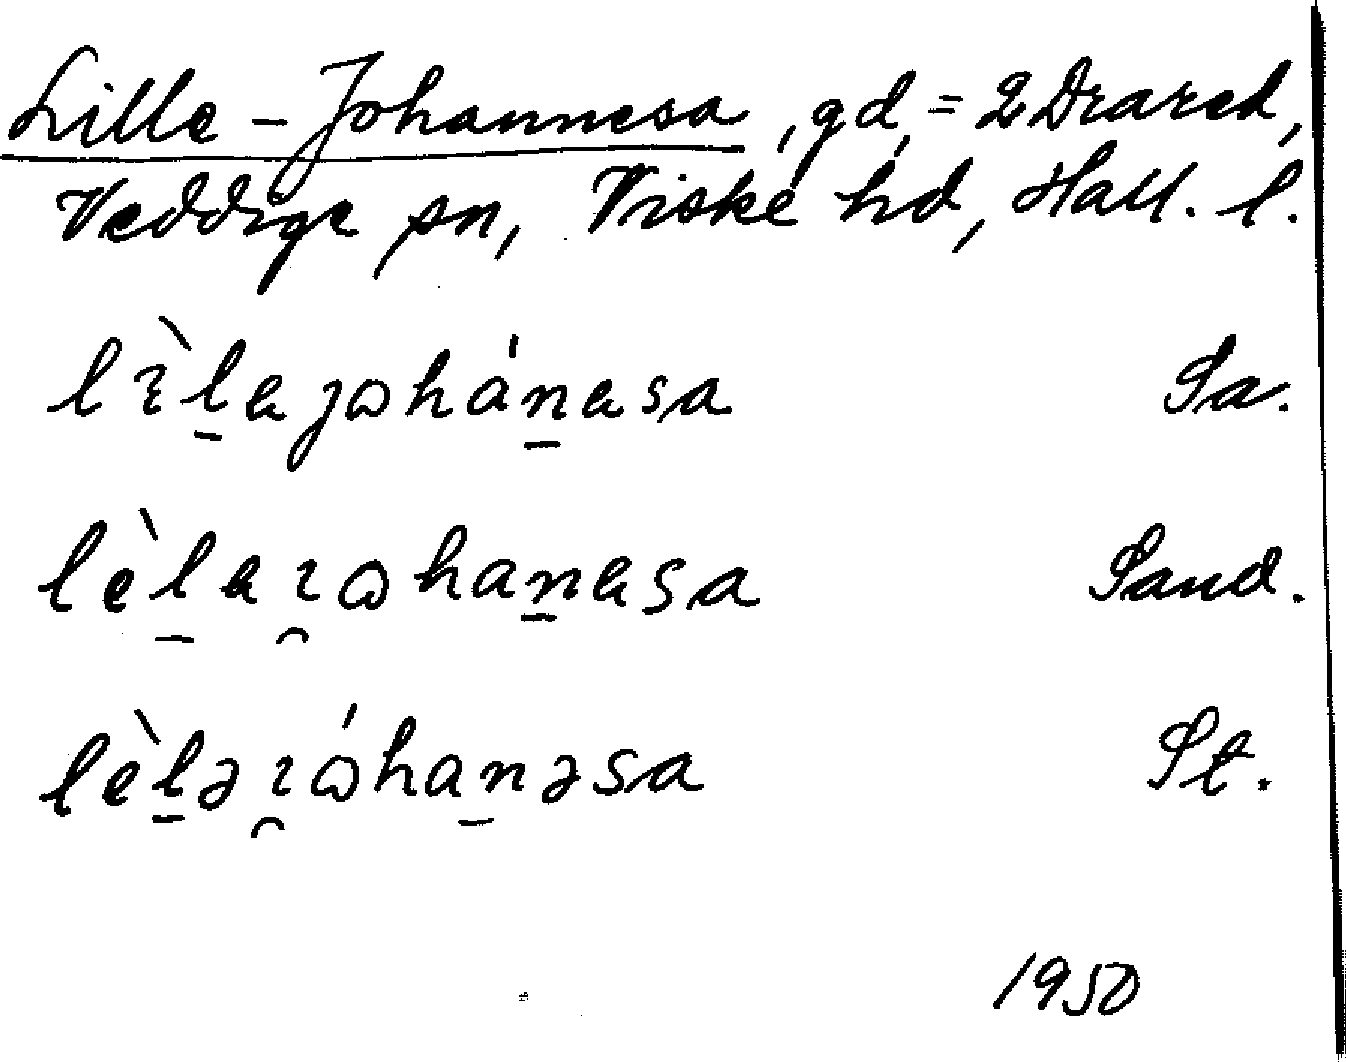 Lille-Johannesa, gd, = 2 Drared,
Veddige sn, Viske hd, Hall. l.
lìl̠ejωhán̠esa Sa.
lèl̠eı̯ωhan̠esa Sand.
lèl̠əı̯ώhan̠əsa St.
1950